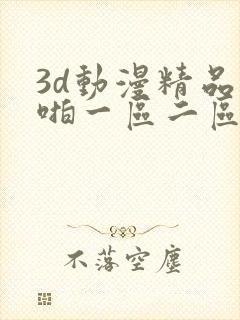 3d動漫精品
啪一區二區
不落空塵